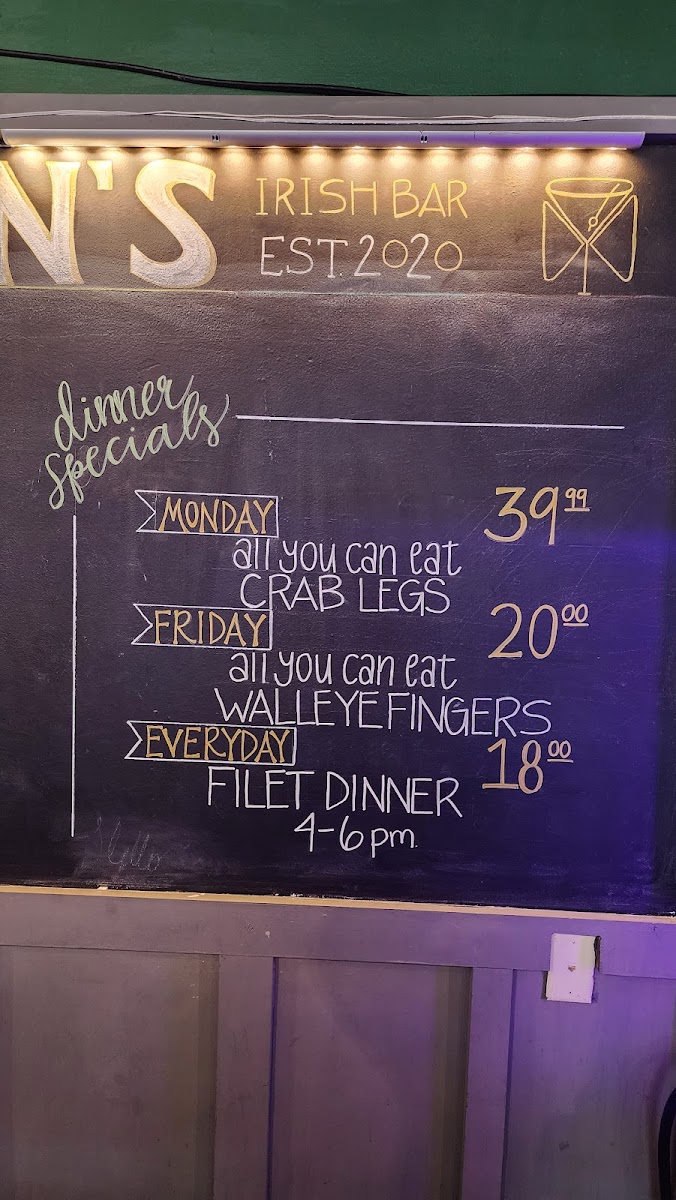 N'S
IRISH BAR
EST. 2020
dinner
specials
MONDAY
39.99
all you can eat
CRAB LEGS
FRIDAY
20.00
all you can eat
WALLEYE FINGERS
EVERYDAY
18.00
FILET DINNER
4-6pm.
Hello